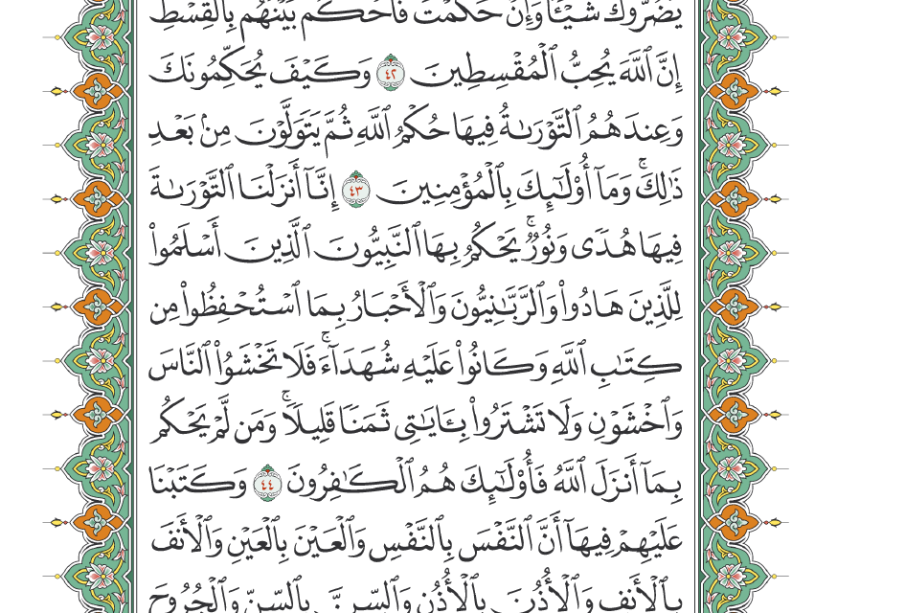 يَضُرُّوكَ شَيْـًٔا وَإِنْ حَكَمْتَ فَٱحْكُم بَيْنَهُم بِٱلْقِسْطِ
إِنَّ ٱللَّهَ يُحِبُّ ٱلْمُقْسِطِينَ ٤٢ وَكَيْفَ يُحَكِّمُونَكَ
وَعِندَهُمُ ٱلتَّوْرَىٰةُ فِيهَا حُكْمُ ٱللَّهِ ثُمَّ يَتَوَلَّوْنَ مِنۢ بَعْدِ
ذَٰلِكَ ۚ وَمَآ أُو۟لَـٰٓئِكَ بِٱلْمُؤْمِنِينَ ٤٣ إِنَّآ أَنزَلْنَا ٱلتَّوْرَىٰةَ
فِيهَا هُدًى وَنُورٌ ۚ يَحْكُمُ بِهَا ٱلنَّبِيُّونَ ٱلَّذِينَ أَسْلَمُوا۟
لِلَّذِينَ هَادُوا۟ وَٱلرَّبَّـٰنِيُّونَ وَٱلْأَحْبَارُ بِمَا ٱسْتُحْفِظُوا۟ مِن
كِتَـٰبِ ٱللَّهِ وَكَانُوا۟ عَلَيْهِ شُهَدَآءَ ۚ فَلَا تَخْشَوُا۟ ٱلنَّاسَ
وَٱخْشَوْنِ وَلَا تَشْتَرُوا۟ بِـَٔايَـٰتِى ثَمَنًا قَلِيلًا ۚ وَمَن لَّمْ يَحْكُم
بِمَآ أَنزَلَ ٱللَّهُ فَأُو۟لَـٰٓئِكَ هُمُ ٱلْكَـٰفِرُونَ ٤٤ وَكَتَبْنَا
عَلَيْهِمْ فِيهَآ أَنَّ ٱلنَّفْسَ بِٱلنَّفْسِ وَٱلْعَيْنَ بِٱلْعَيْنِ وَٱلْأَنفَ
بِٱلْأَنفِ وَٱلْأُذُنَ بِٱلْأُذُنِ وَٱلسِّنَّ بِٱلسِّنِّ وَٱلْجُرُوحَ